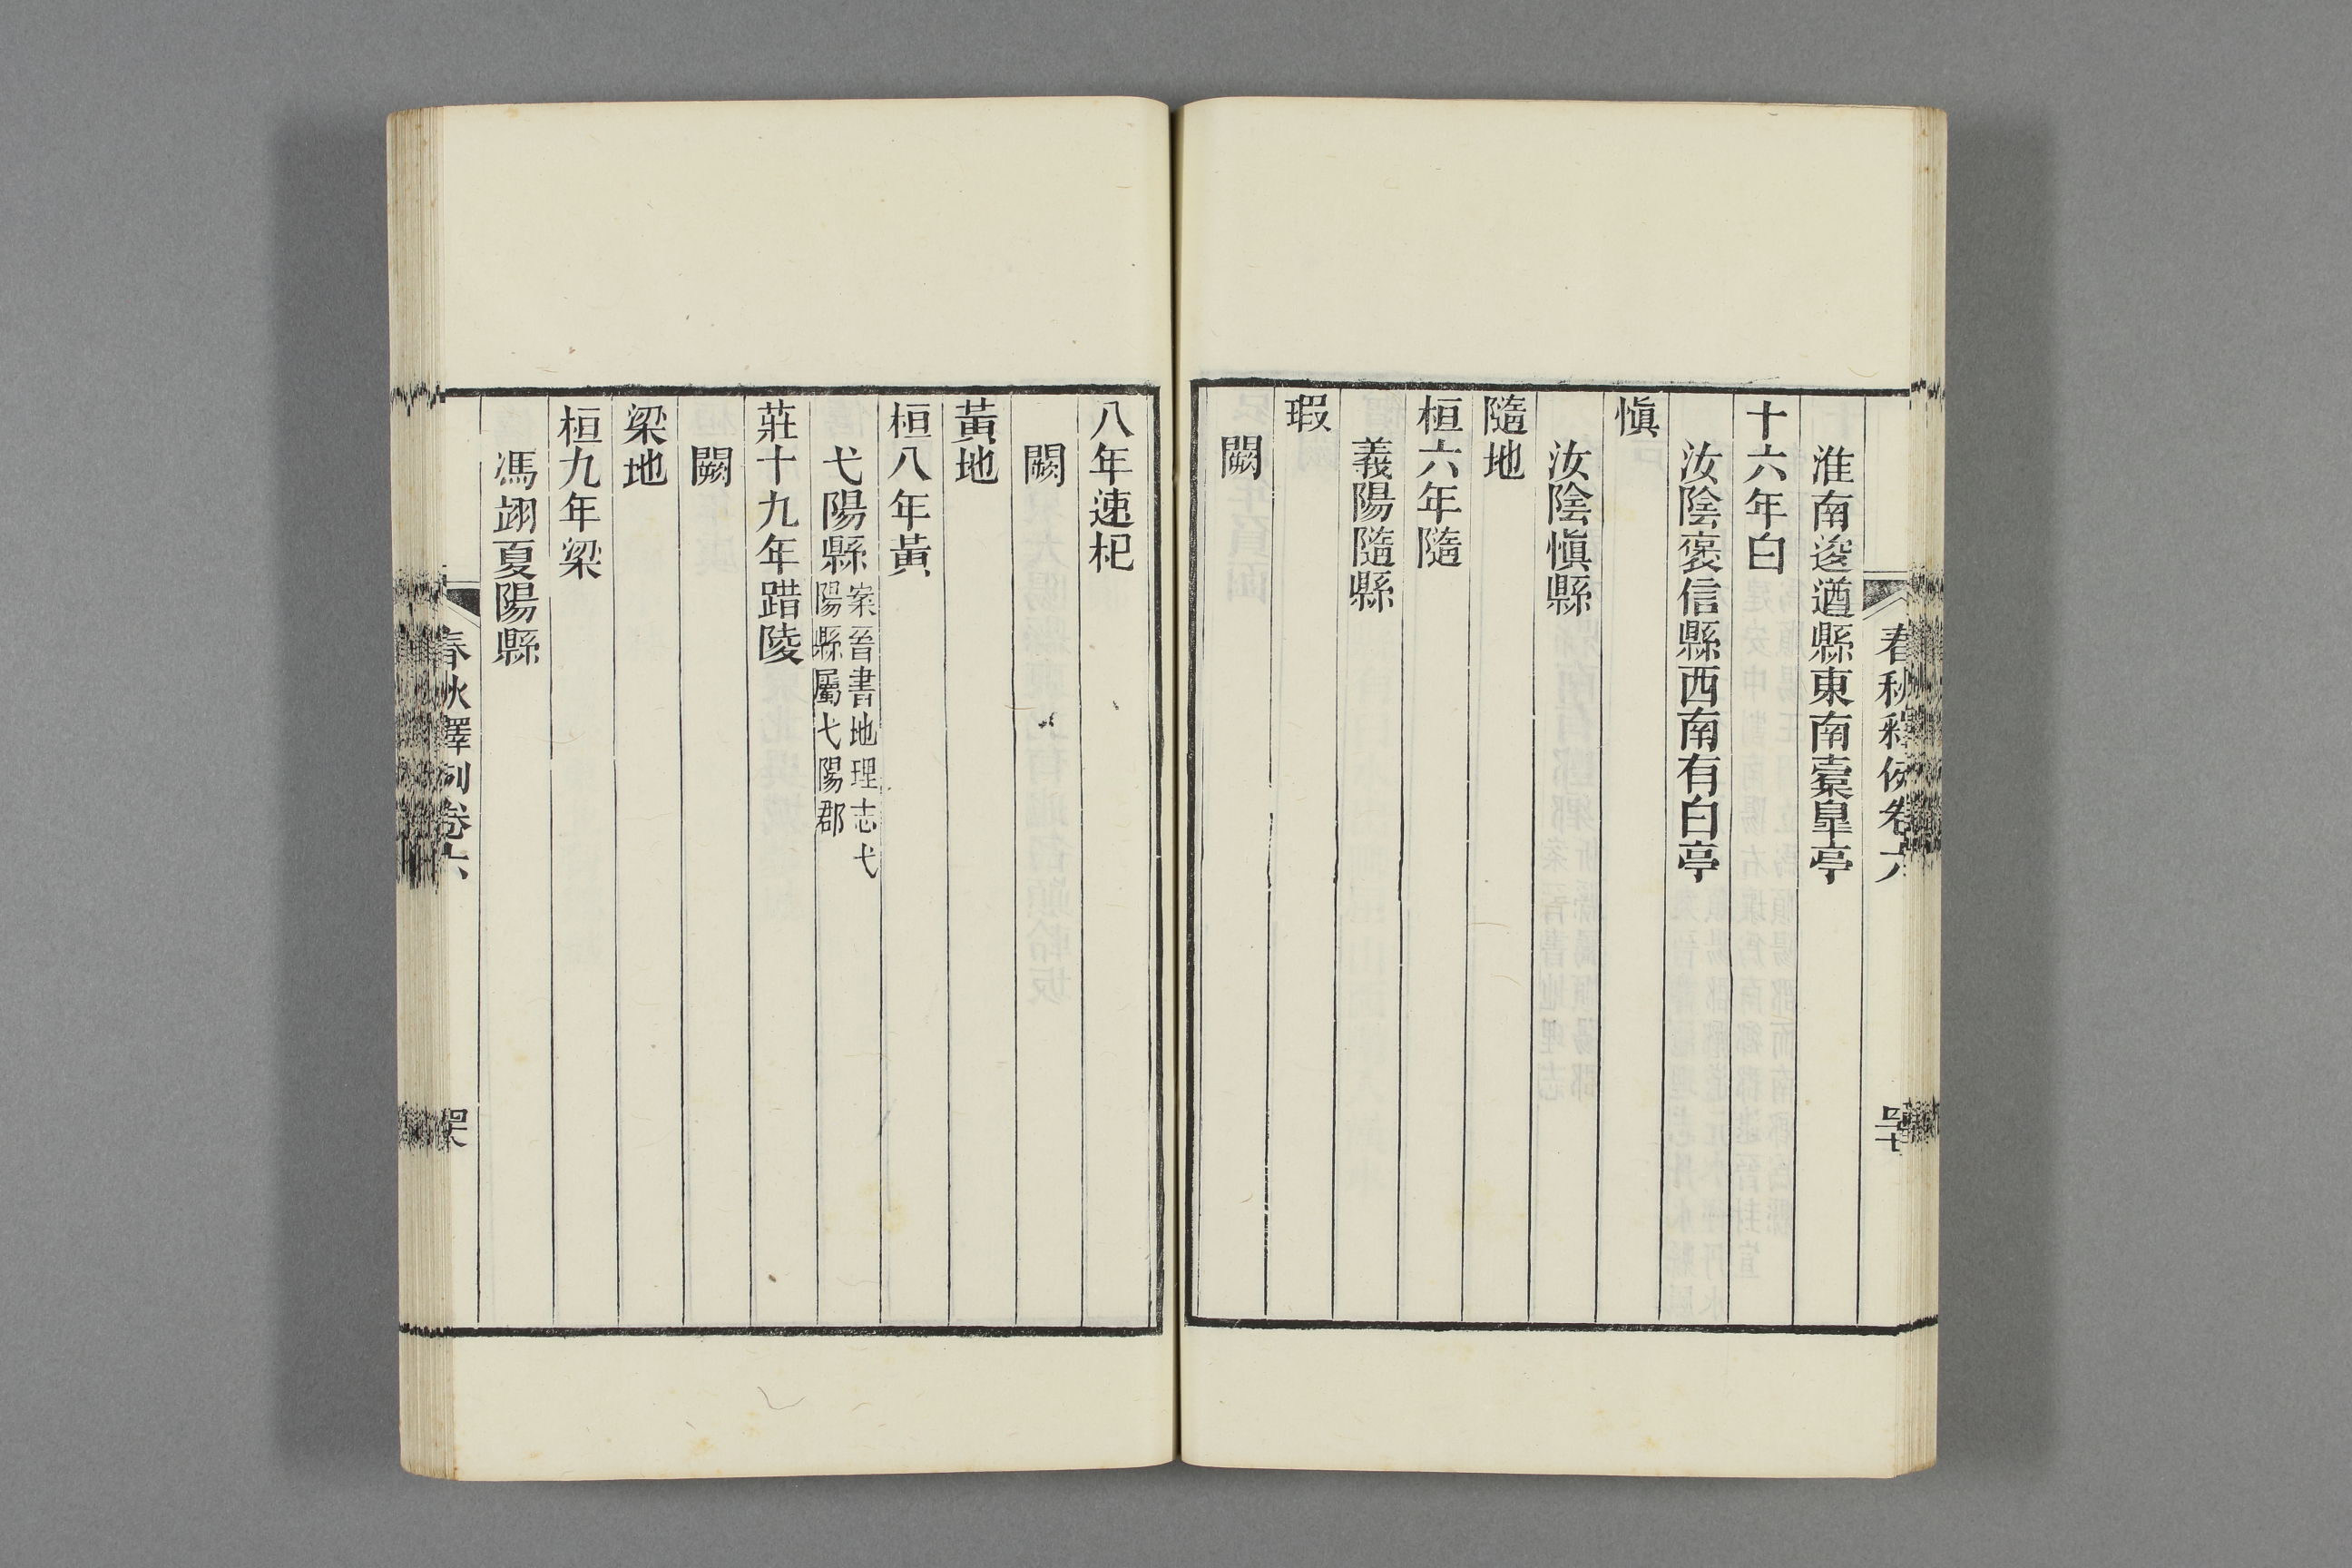 春秋釋例卷六
淮南逡遒縣東南橐臯亭
十六年白
汝陰褒信縣西南有白亭
愼
汝陰愼縣
隨地
桓六年隨
義陽隨縣
瑕
闕
八年速杞
闕
黃地
桓八年黃
弋陽縣案晉書地理志弋
陽縣屬弋陽郡
莊十九年踖陵
闕
梁地
桓九年梁
馮翊夏陽縣
春秋釋例卷六